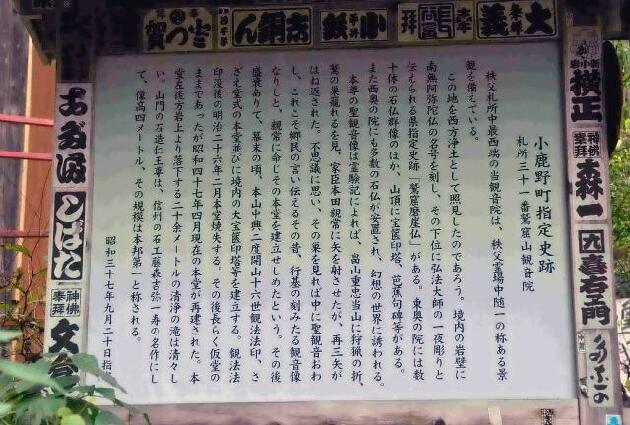 小鹿野町指定史跡
札所三十一番鷲窟山観音院
秩父札所中最西端の当観音院は、秩父霊場中随一の称ある景
観を備えている。
この地を西方浄土として照見したのであろう。境内の岩壁に
南無阿弥陀仏の名号を刻し、その下位に弘法大師の一夜彫りと
伝えられる県指定史跡「鷲窟磨崖仏」がある。東奥の院には数
十体の石仏群像のほか、山頂に宝医印塔、芭蕉句碑等がある。
また西奥の院にも多数の石仏が安置され、幻想の世界に誘われる。
本尊の聖観音像は霊験記によれば、畠山重忠当山に狩猟の折、
鷲の巣籠れるを見、家臣本田親常に矢を射させたが、再三矢が
はね返された。不思議に思い、その巣を見れば中に聖観音おわ
し、これこそ郷民の言い伝えるその昔、行基の刻みたる観音像
なりしと、親常に命じその本堂を建立せしめたという。その後
盛衰ありて、幕末の頃、本山中興二度開山十六世観法法印、さ
ざえ堂式の本堂並びに境内の大宝医印塔等を建立する。観法法
印没後の明治二十六年二月本堂焼失する。その後長らく仮堂の
ままであったが昭和四十七年四月現在の本堂が再建された。本
堂左後方岩上より落下する二十余メートルの清浄の滝は清々し
い。山門の石造仁王尊は、信州の石工藤森吉弥一寿の名作にし
て、像高四メートル、その規模は本邦第一と称される。
昭和三十七年九月二十日指
大義
小鉄
志銅ん
横正
神佛
奉拝
森一
喜右エ門
しばた
神佛
奉拝